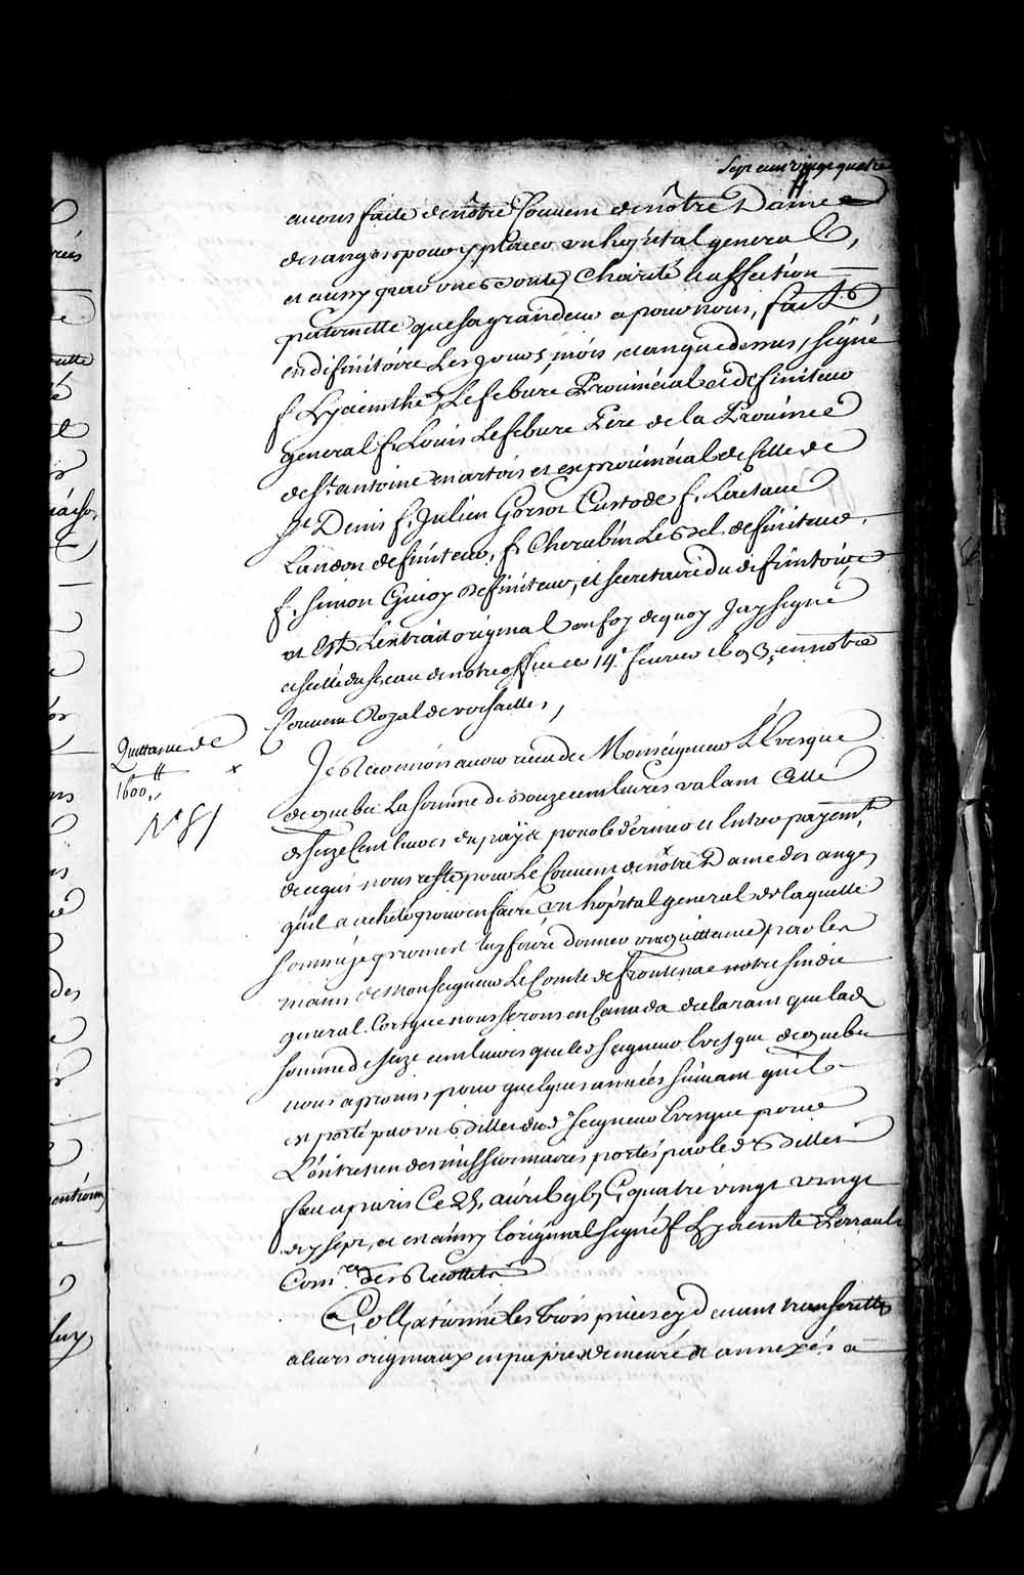 Sept cent vingt quatre
auons faite de nôtre Couuent de nôtre Dame
des anges pour y placer un hospital general,
et aussy pour une Charité et affection
paternelle que sa grandeur a pour nous, fait
en difinitoire Les jours, mois, et an que dessus, signé
f. Hyacinthe Lefebure Prouincial et definiteur
general f. Louis Lefebure Pere de la Prouince
de St. antoine en artois et exprouincial de celle de
St Denis f. Julien Custode f.
Landon definiteur, f. Cherubin definiteur,
f. Simon definiteur, et secretaire du difinitoire
et Est Lextrait original en foy de quoy Jay signé
et scellé du sceau de notre office ce 14.e feurier 1693, en notre
Couuent Royal de versailles,
Quittance de
1600 ₶
N° 81
Je Reconnois auoir receu de Monseigneur L'Euesque
de quebec La somme de douze cent liures valant Celle
de seize Cent liures du païs pour le dernier et Entier payemt.
de ce qui nous reste pour Le Couuent de nôtre Dame des anges
quil a acheté pour en faire un hôpital general de laquelle
somme je promest luy faire donner une quittance par les
mains de Monseigneur Le Comte de frontenac notre sindic
general. Lorsque nous serons en Canada declarant que lad.
somme de seize cent liures que led. seigneur Euesque de quebec
nous a promis pour quelques années suiuant quil
est porté par un billet dud. seigneur Euesque pour
L'entretien des missionnaires portés par led. billet
fait a paris Ce 25. auril gbjc quatre vingt
dix sept, et en aussy l'original signé f. Hyacinthe Perrault
Comre. des Recollets
Collationné les trois pieces cy deuant transcrittes
a leurs originaux en papier demeuré et annexés a